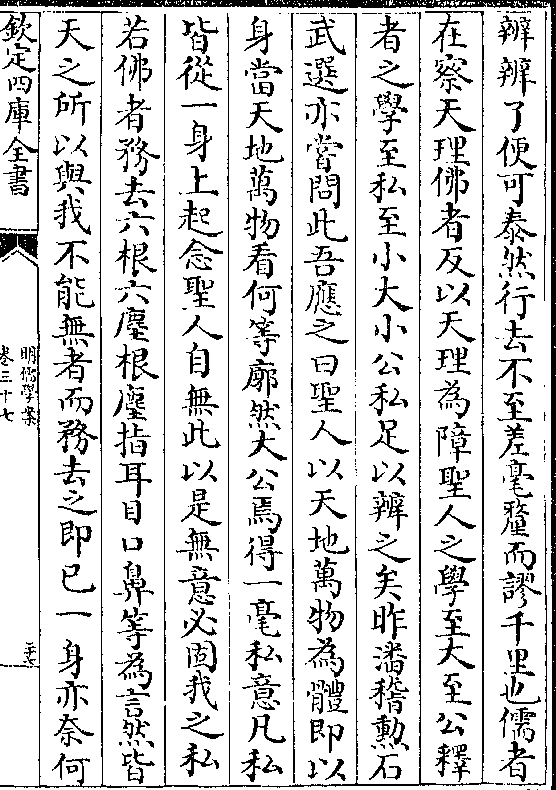 辨辨了便可泰然行去不至差毫釐而謬千里也儒者
在察天理佛者反以天理為障聖人之學至大至公釋
者之學至私至小大小公私足以辨之矣昨潘稽勲石
武選亦嘗問此吾應之曰聖人以天地萬物為體即以
身當天地萬物看何等廓然大公焉得一毫私意凡私
皆從一身上起念聖人自無此以是無意必固我之私
若佛者務去六根六塵根塵指耳目口鼻等為言然皆
天之所以與我不能無者而務去之即已一身亦奈何
欽定四庫全書
明儒學案
卷三十七